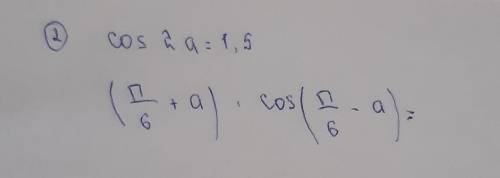 ② cos 2a = 1,5
(π/6 + a) · cos(π/6 - a) =